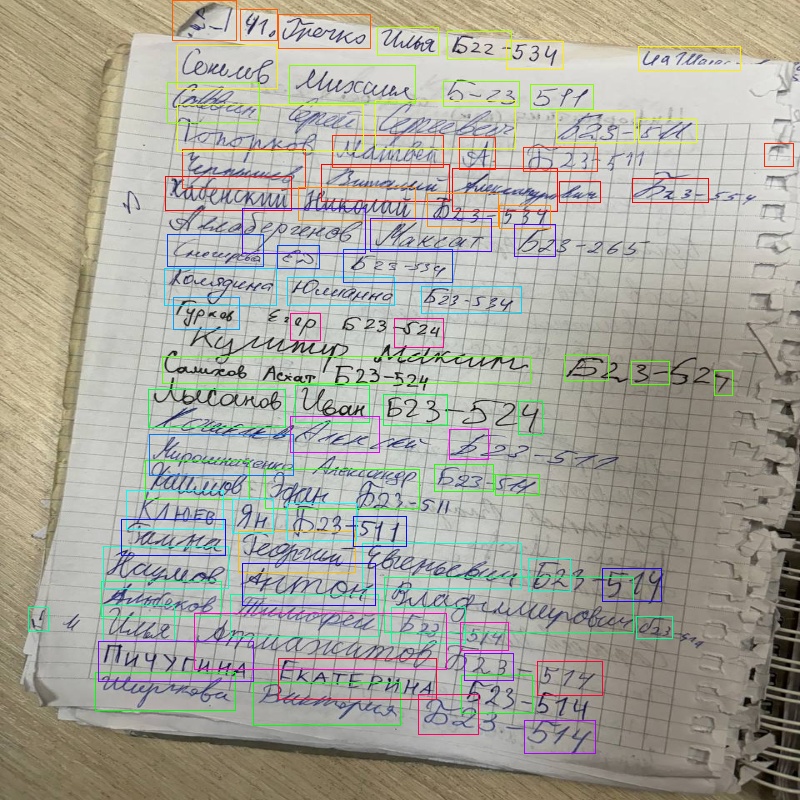 41. Гречко Илья Б22-534
Секелев Михаил Б-23 511
Сергей Сергеевич Б23-511
Топорков Матвей А Б23-511
Чернышев Виталий Александрович Б23-554
Хабенский Николай Б23-534
Авлабергенов Максат Б23-265
Б23-534
Колядина Юлианна Б23-534
Гурков Егор Б23-524
Кушнир Максим Б23-524
Салихов Асхат Б23-524
Лысанов Иван Б23-524
Алексей Б23-511
Мирошниченко Александр Б23-511
Каимов Эдан Б23-511
Клюев Ян Б23-511
Галина Георгий Евгеньевич Б23-514
Наумов Антон Владимирович Б23-511
Альбеков Тимофей Б23-514
Илья Атмажитов Б23-514
Пичугина Екатерина Б23-514
Ширикова Виктория Б23-514